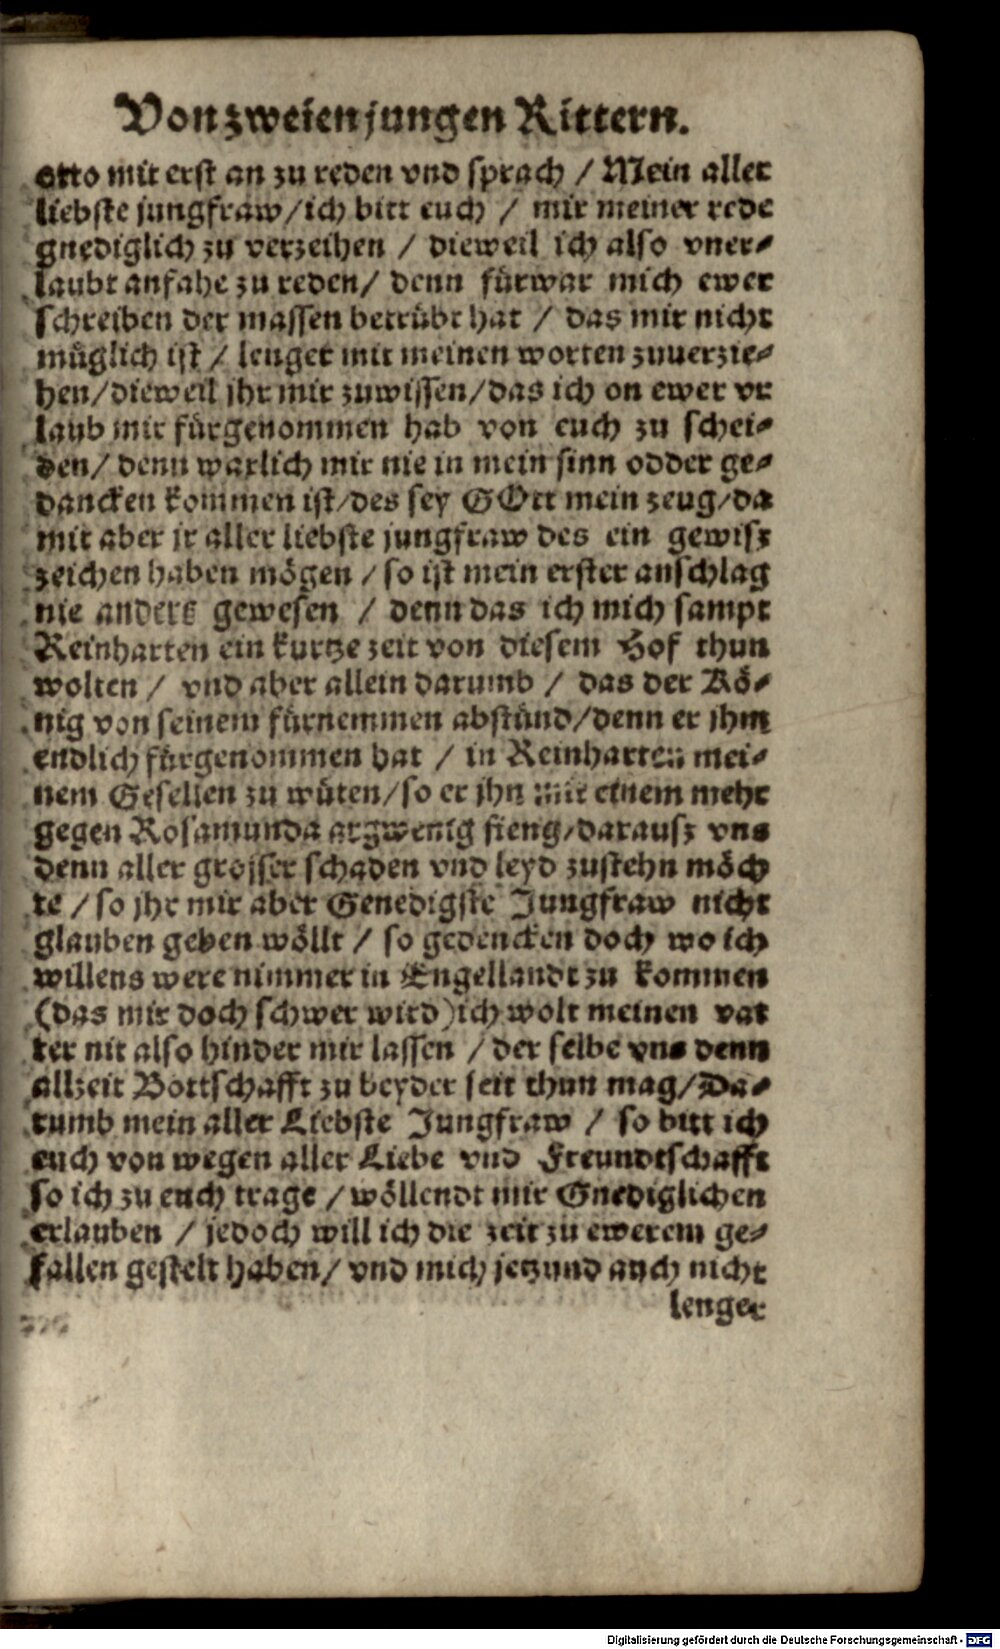 Von zweien jungen Rittern.
otto mit erst an zu reden vnd sprach / Mein aller
liebste jungfraw / ich bitt euch / mir meiner rede
gnediglich zu verzeihen / dieweil ich also vner-
laubt anfahe zu reden / denn fürwar mich ewer
schreiben der massen betrübt hat / das mir nicht
müglich ist / lenger mit meinen worten zuuerzie-
hen / dieweil jhr mir zuwissen / das ich on ewer vr
laub mir fürgenommen hab von euch zu schei-
den / denn warlich mir nie in mein sinn odder ge-
dancken kommen ist / des sey GOtt mein zeug / da
mit aber jr aller liebste jungfraw des ein gewisz
zeichen haben mögen / so ist mein erster anschlag
nie anders gewesen / denn das ich mich sampt
Reinharten ein kurtze zeit von diesem Hof thun
wolten / vnd aber allein darumb / das der Kö-
nig von seinem fürnemmen abstünd / denn er jhm
endlich fürgenommen hat / in Reinharten mei-
nem Gesellen zu wüten / so er jhn mit einem mehr
gegen Rosamunda argwenig fieng / darausz vns
denn aller grosser schaden vnd leyd zustehn möch
te / so jhr mir aber Genedigste Jungfraw nicht
glauben geben wöllt / so gedencken doch wo ich
willens were nimmer in Engellandt zu kommen
(das mir doch schwer wird) ich wolt meinen vat
ter nit also hinder mir lassen / der selbe vns denn
allzeit Bottschafft zu beyder seit thun mag / Da-
rumb mein aller Liebste Jungfraw / so bitt ich
euch von wegen aller Liebe vnd Freundtschafft
so ich zu euch trage / wöllendt mir Gnediglichen
erlauben / jedoch will ich die zeit zu ewerem ge-
fallen gestelt haben / vnd mich jetzund auch nicht
lenger
Digitalisierung gefördert durch die Deutsche Forschungsgemeinschaft - DFG